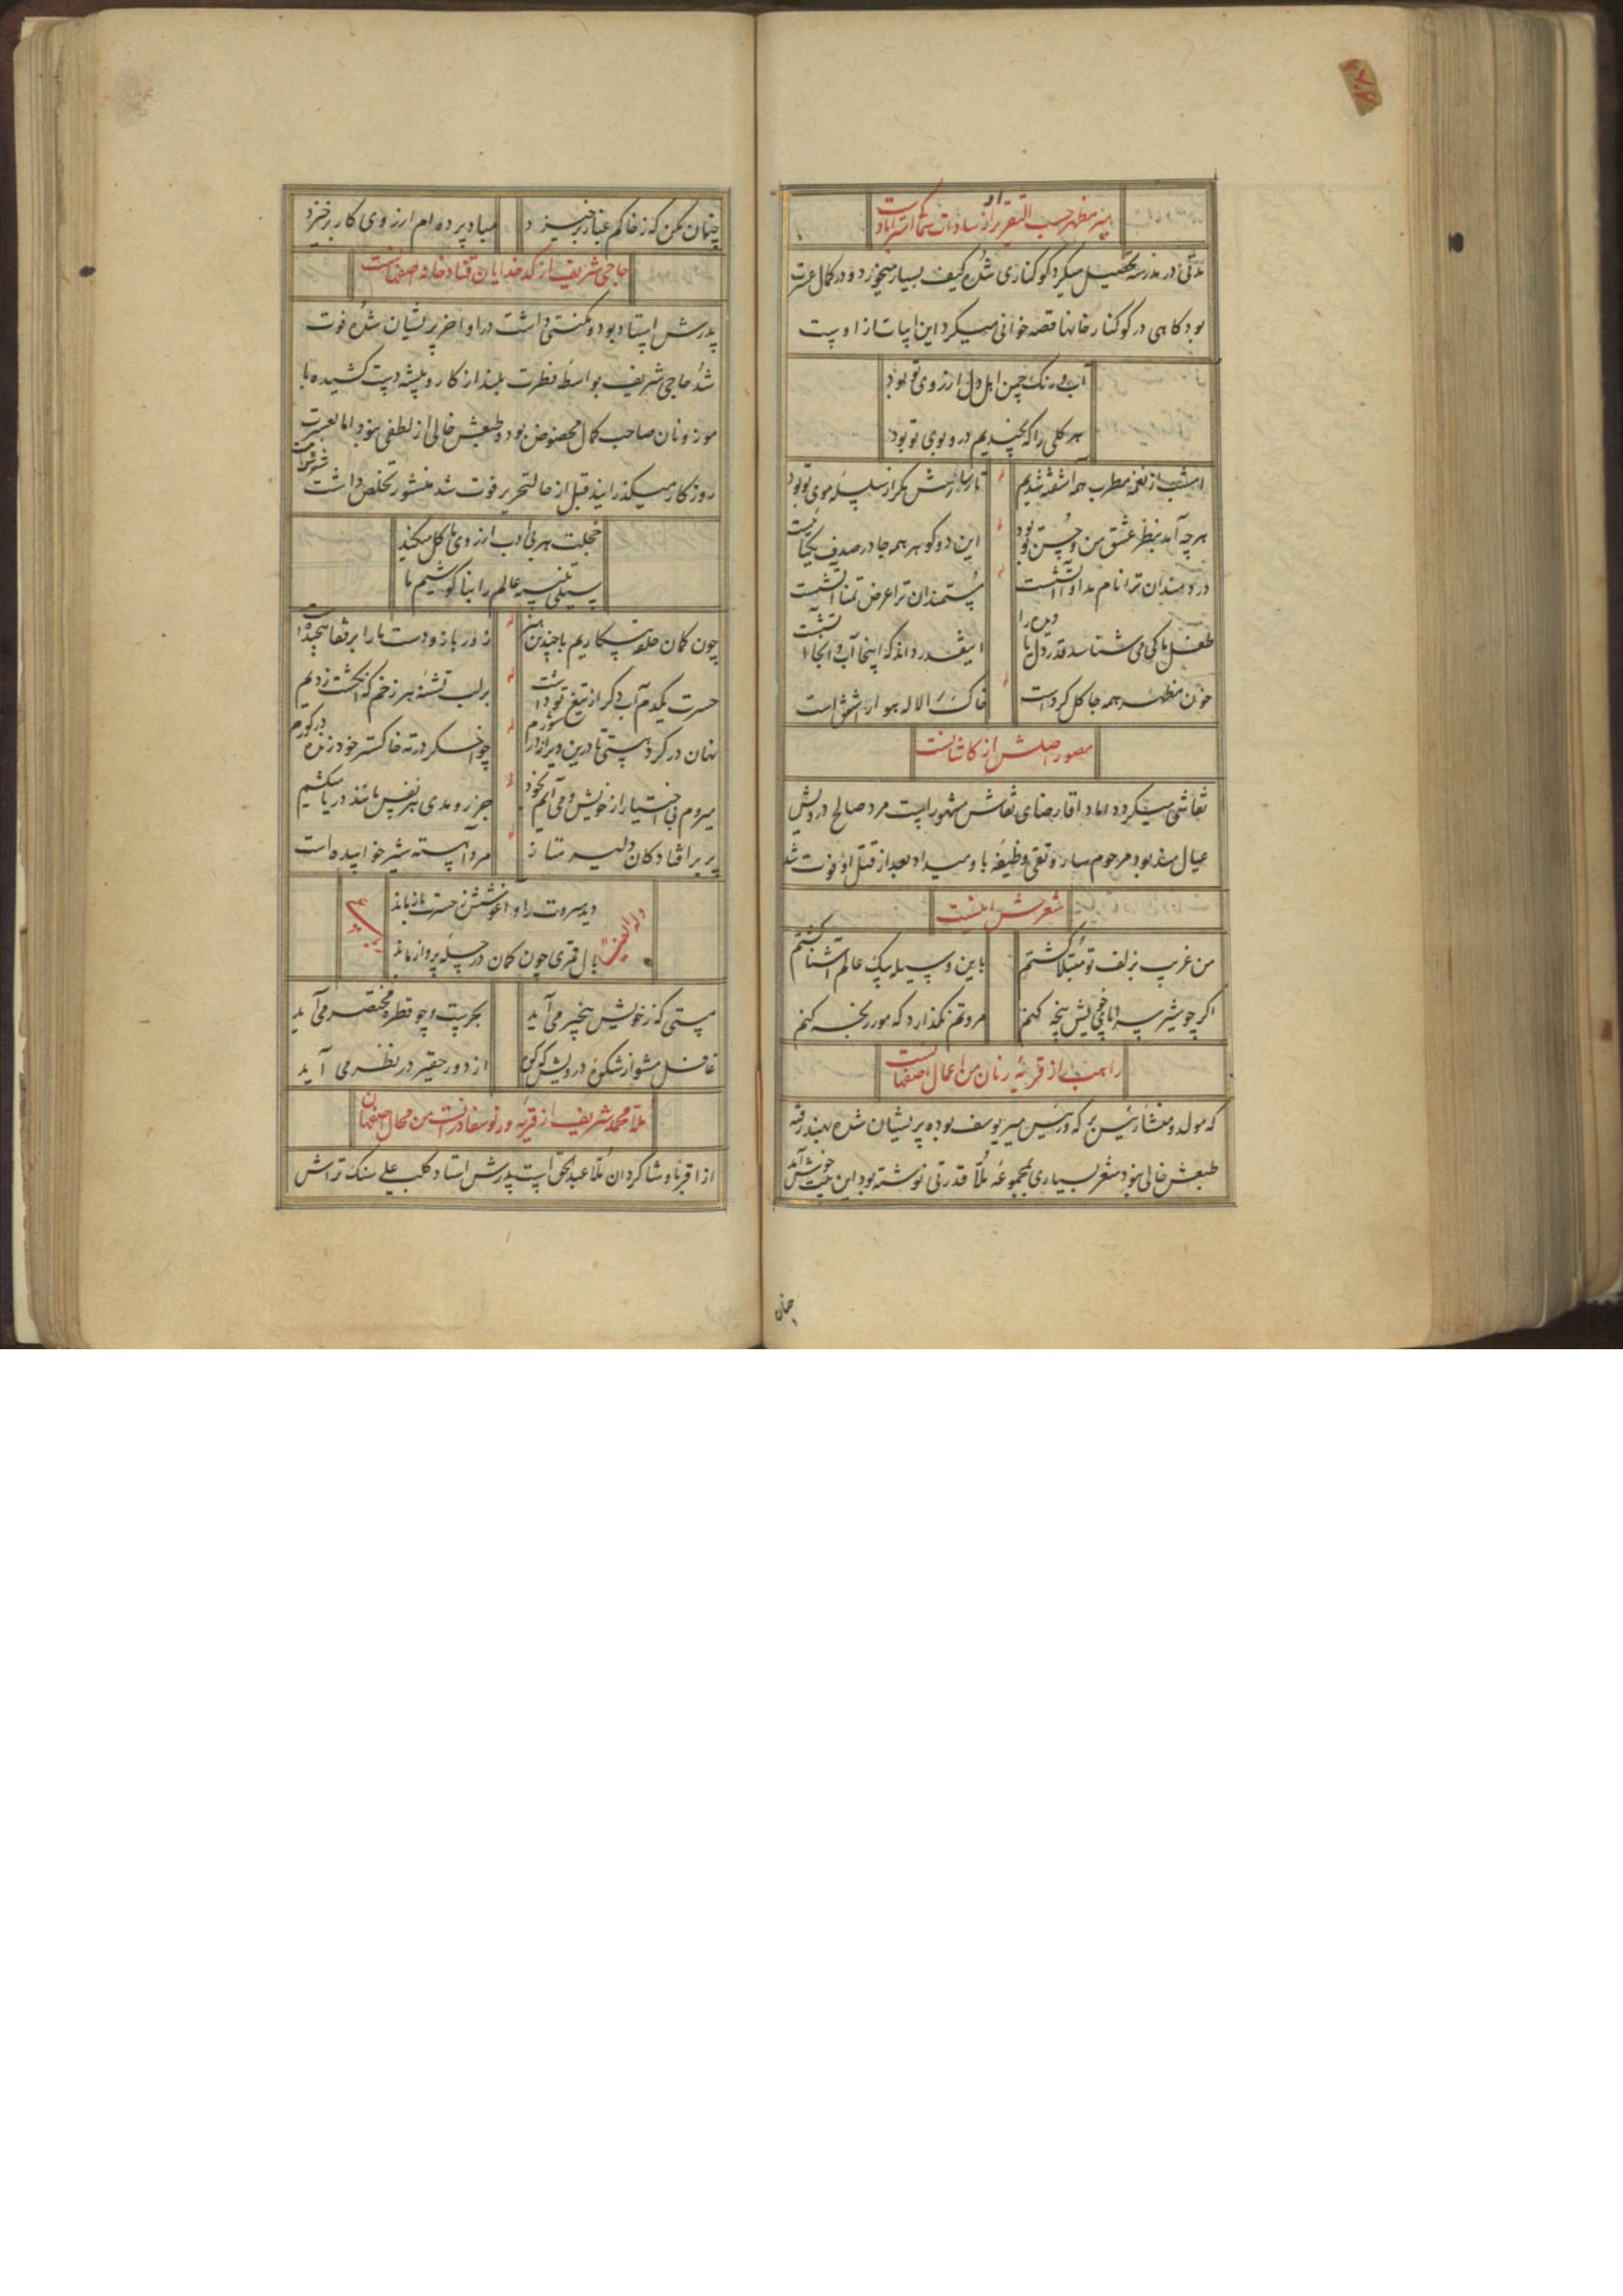 میر مظهر حسب التقریر او از سادات سماک استرآباد است
مدتی در مدرسه تحصیل میکرد کوکناری شده کیف بسیار میخورد و در کمال عسرت
بود کاهی در کوکنار خانها قصه خوانی میکرد این ابیات ازاوست
آب و رنک چمن اهل دل ارزوی تو بود
هر کلی را که بچیدیم در و بوی تو بود
امشب از نغمه مطرب همه آشفته شدیم
تار سازش مکر از سلسله موی تو بود
هر چه آمد بنظر عشق من و حسن تو بود
این دو کوهر همه جا در صدف یکجائیست
دردمندان ترا نام مداوا تشنست
مستمندان ترا عرض تمنا تشنست
طفل ما کی می شناسد قدر دل را
اینقدر داند که اینجا آب و آنجا آتشست
خون مظهر همه جا کل کرد است
خاک را لاله هموار است
مصور اصلش از کاشانست
نقاشی میکرد داماد اقا رضای نقاش مشهور است مرد صالح درویش
عیال مند بود مرحوم ساروتقی وظیفه باو میداد بعد از قتل او فوت شد
شعرش اینست
من غریب بزلف تو مبتلا کشتم
باین وسیله بیک عالم آشنا کشتم
اکر چو شیر سراپای خویش پنجه کنم
مروتم نکذارد که مور رنجه کنم
راهب از قریه رنان من اعمال اصفهانست
که مولد و منشا رئیس میر یوسف بوده پریشان شده بهند رفته
طبعش خالی نبود شعر بسیاری بمجموعه ملا قدرتی نوشته بود این بیت خوش آمد
چنان
چنان مکن که ز خاکم غبار برخیزد
مباد پرده ام ارزوی کار برخیزد
حاجی شریف از کدخدایان قناد خانه اصفهانست
پدرش استاد بود و مکنتی داشت در اواخر پریشان شده فوت
شد حاجی شریف بواسطه فطرت بلند از کار و پیشه دست کشیده با
موزونان صاحب کمال مخصوص بود و طبعش خالی از لطفی نبود اما بعسرت
روزکار میکذرانید قبل از حالتحریر فوت شد منشور تخلص داشت شعرش اینست
خجلت هر بی ادب از روی ما کل میکند
سیلی تنبیه عالم را بناکوشیم ما
چون کمان حلقه بیکاریم با چندین هنر
زور بازو دست ما را بر قفا پیچیده است
حسرت یکدم آب دکر از تیغ تو داشت
بر لب تشنه هر زخم که انکشت زدیم
نهان در کرد هستی تا درین ویرانه دارد شورم
چو اخکر در ته خاکستر خود زنده در کورم
میروم بی اختیار از خویش و می آیم بخود
جزر و مدی هر نفس مانند دریا میکشم
بر سر افتادکان دلیر متاز
مرد آهسته شیر خوابیده است
وله ایضا
دید سروت را و اغوشش ز حسرت باز ماند
بال قمری چون کمان در چله پرواز ماند
مستی که ز خویش بیخبر می آید
بحریست و چو قطره مختصر می آید
غافل مشو از شکوه درویش که کوه
از دور حقیر در نظر می آید
ملا محمد شریف از قریه ورنوسفادرانست من محال اصفهان
از اقربا و شاکردان ملا عبدالحق است پدرش استاد کلب علی سنک تراش